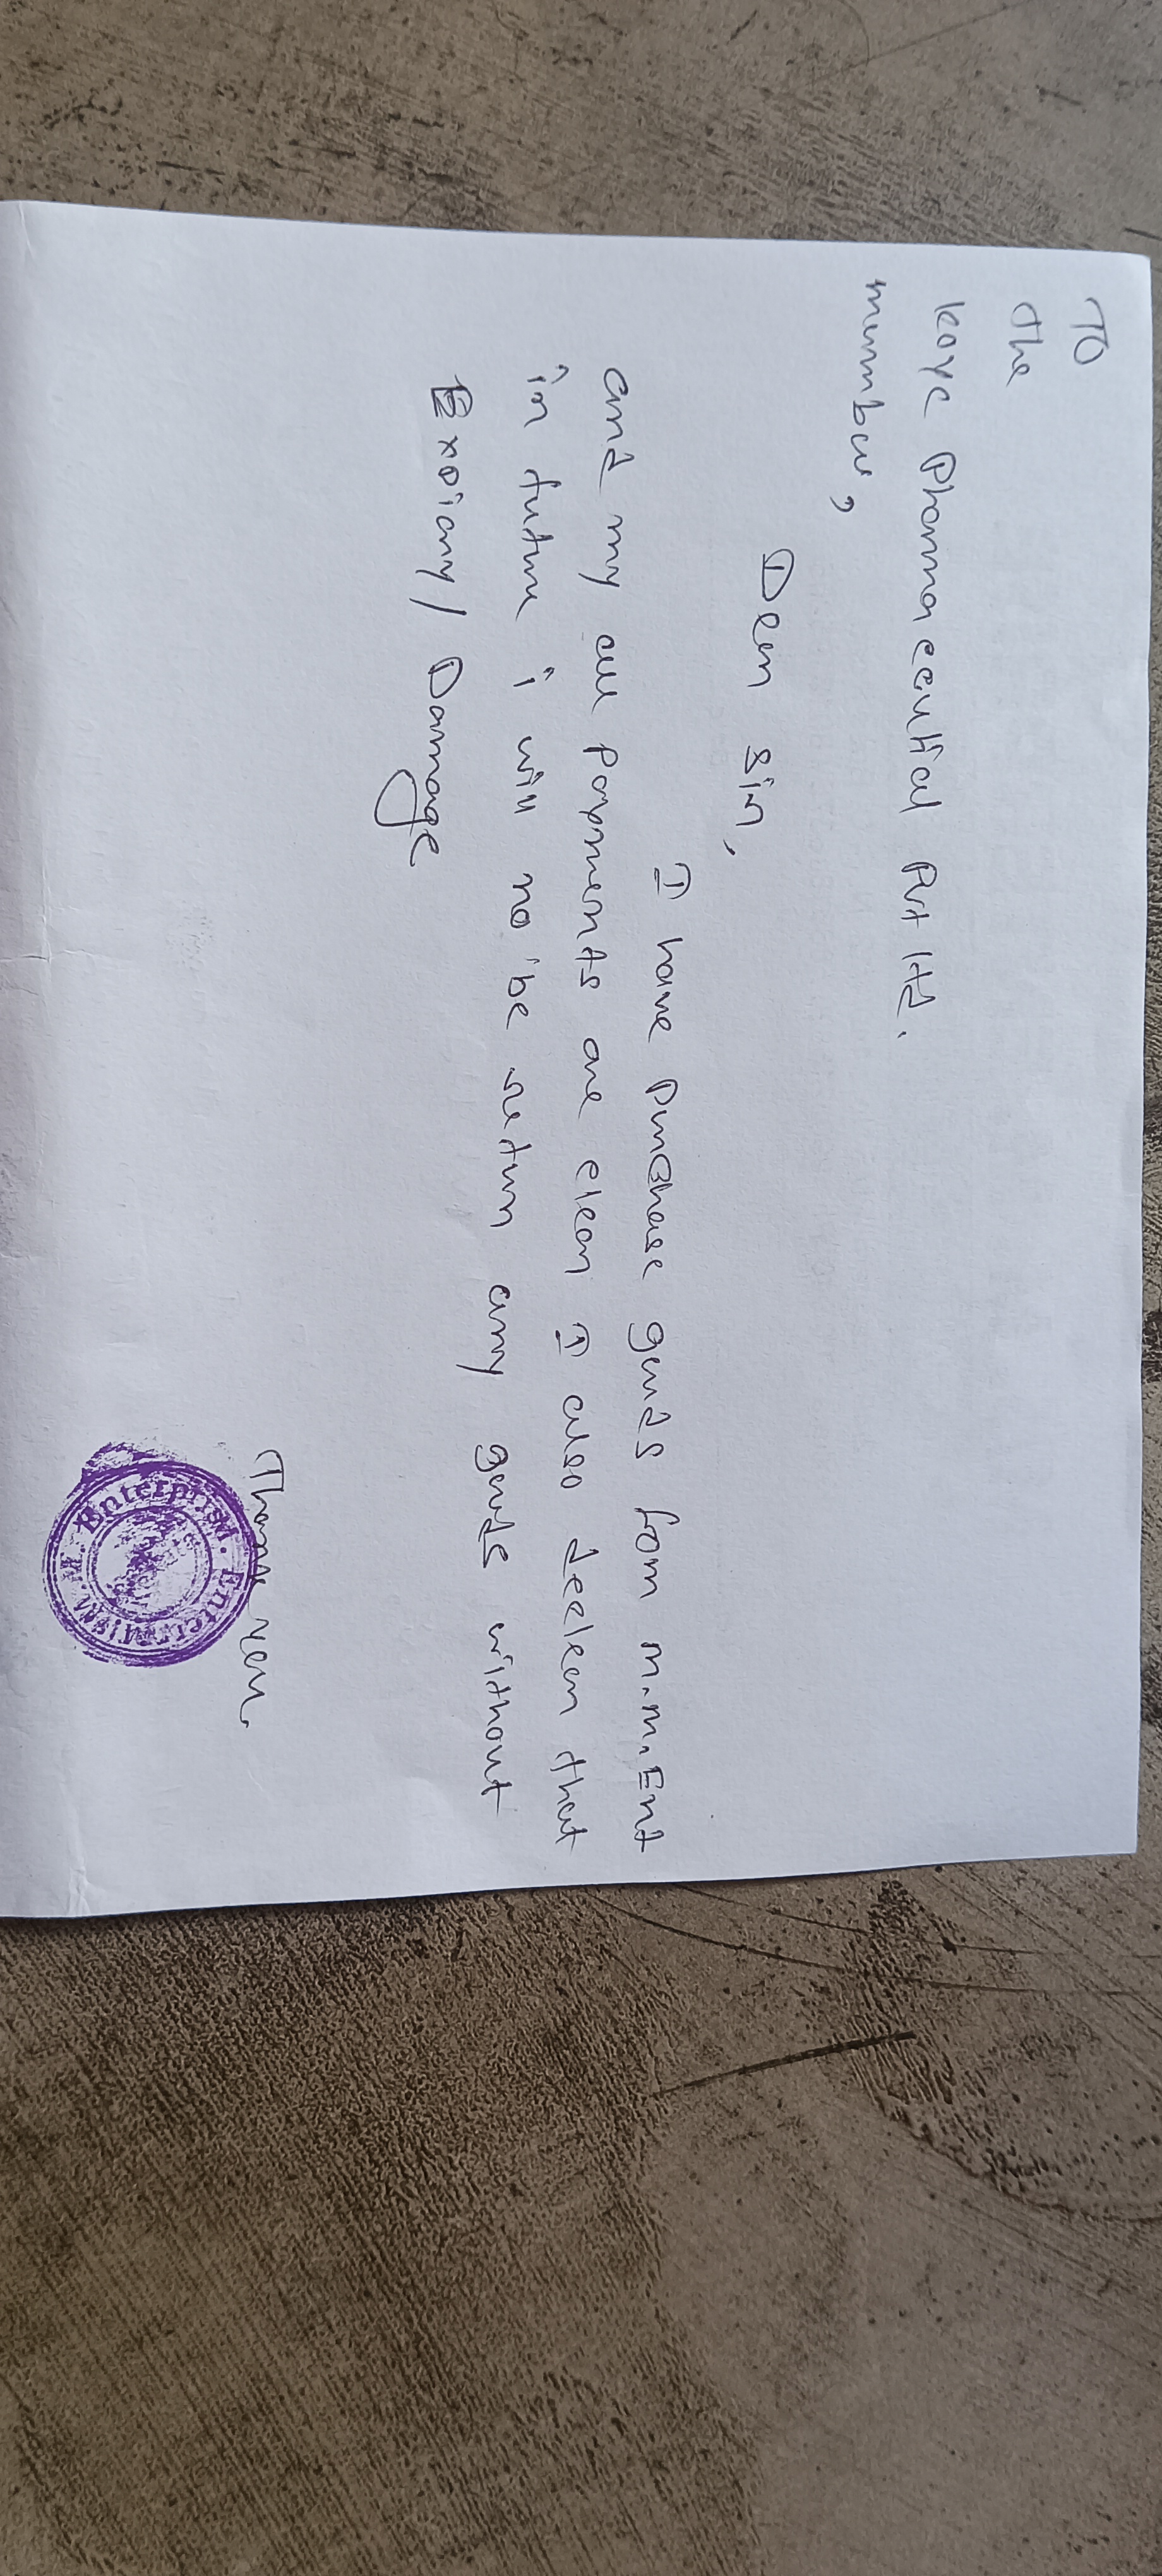 TO
the
kaye Pharmaceutical Pvt ltd.
mumbai,
Dear sir,
I have purchase goods from m.m. Ent
and my all payments are clear I also declear that
in future i will no be return any goods without
Expiary / Damage
Thank you.
M.M. Enterprise. Enterprise